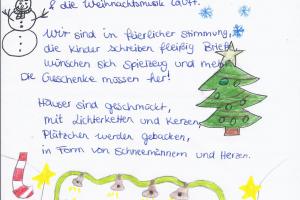 & die Weihnachtsmusik läuft.
Wir sind in feierlicher Stimmung,
die Kinder schreiben fleißig Briefe
wünschen sich Spielzeug und mehr
Die Geschenke müssen her!
Häuser sind geschmückt,
mit Lichterketten und Kerzen,
Plätzchen werden gebacken,
in Form von Schneemännern und Herzen.